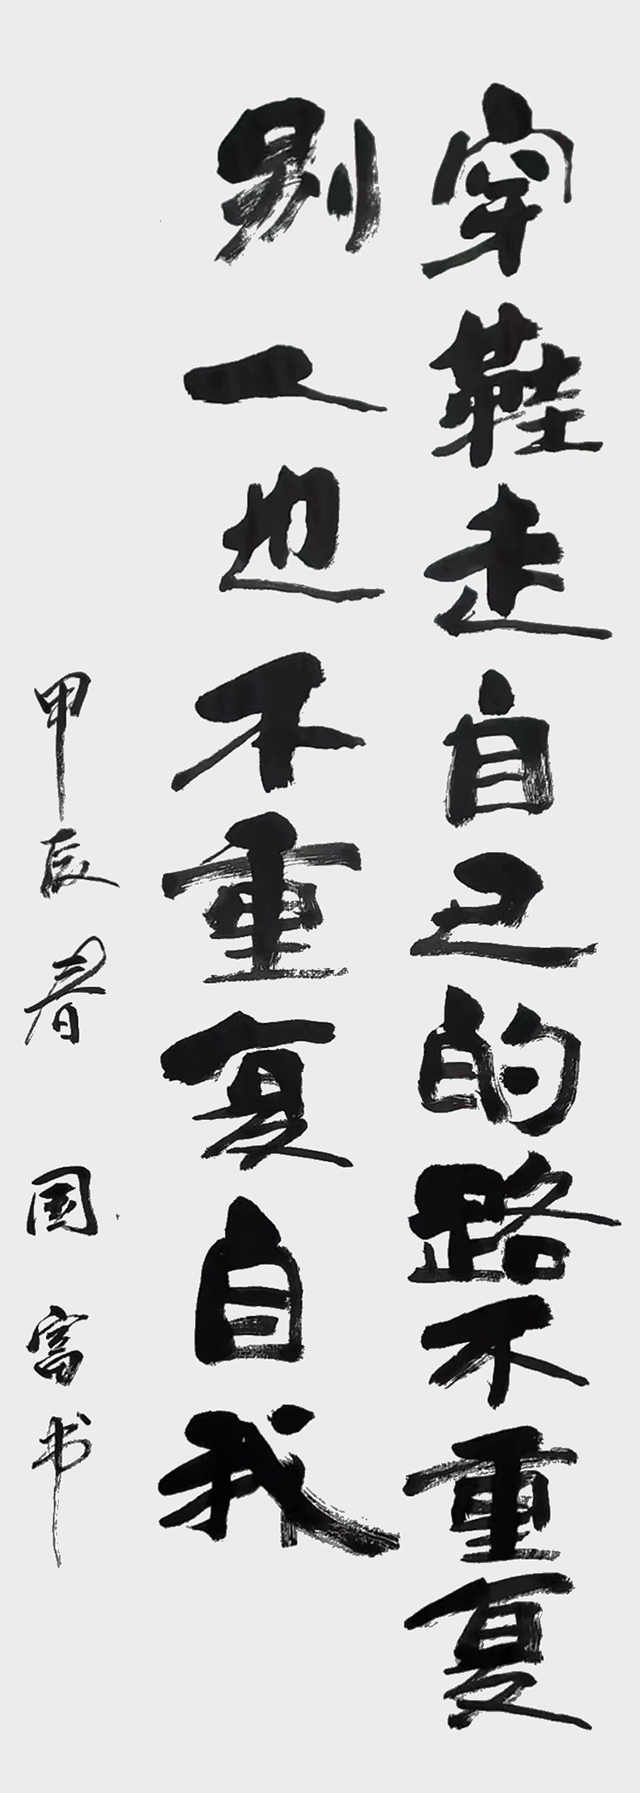 穿鞋走自己的路不重复
别人也不重复自我
甲辰春 国富书